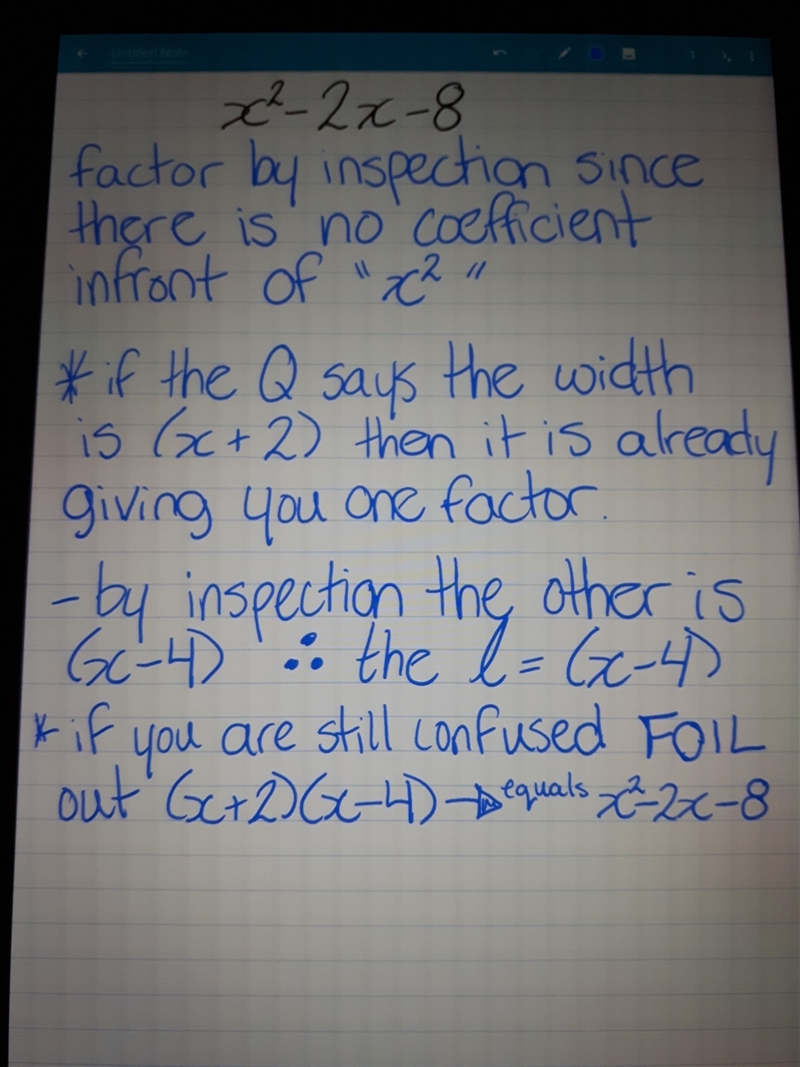 Untitled Note
x²-2x-8
factor by inspection since
there is no coefficient
infront of "x²"
* if the Q says the width
is (x+2) then it is already
giving you one factor.
- by inspection the other is
(x-4) ∴ the l = (x-4)
* if you are still confused FOIL
out (x+2)(x-4) → equals x²-2x-8